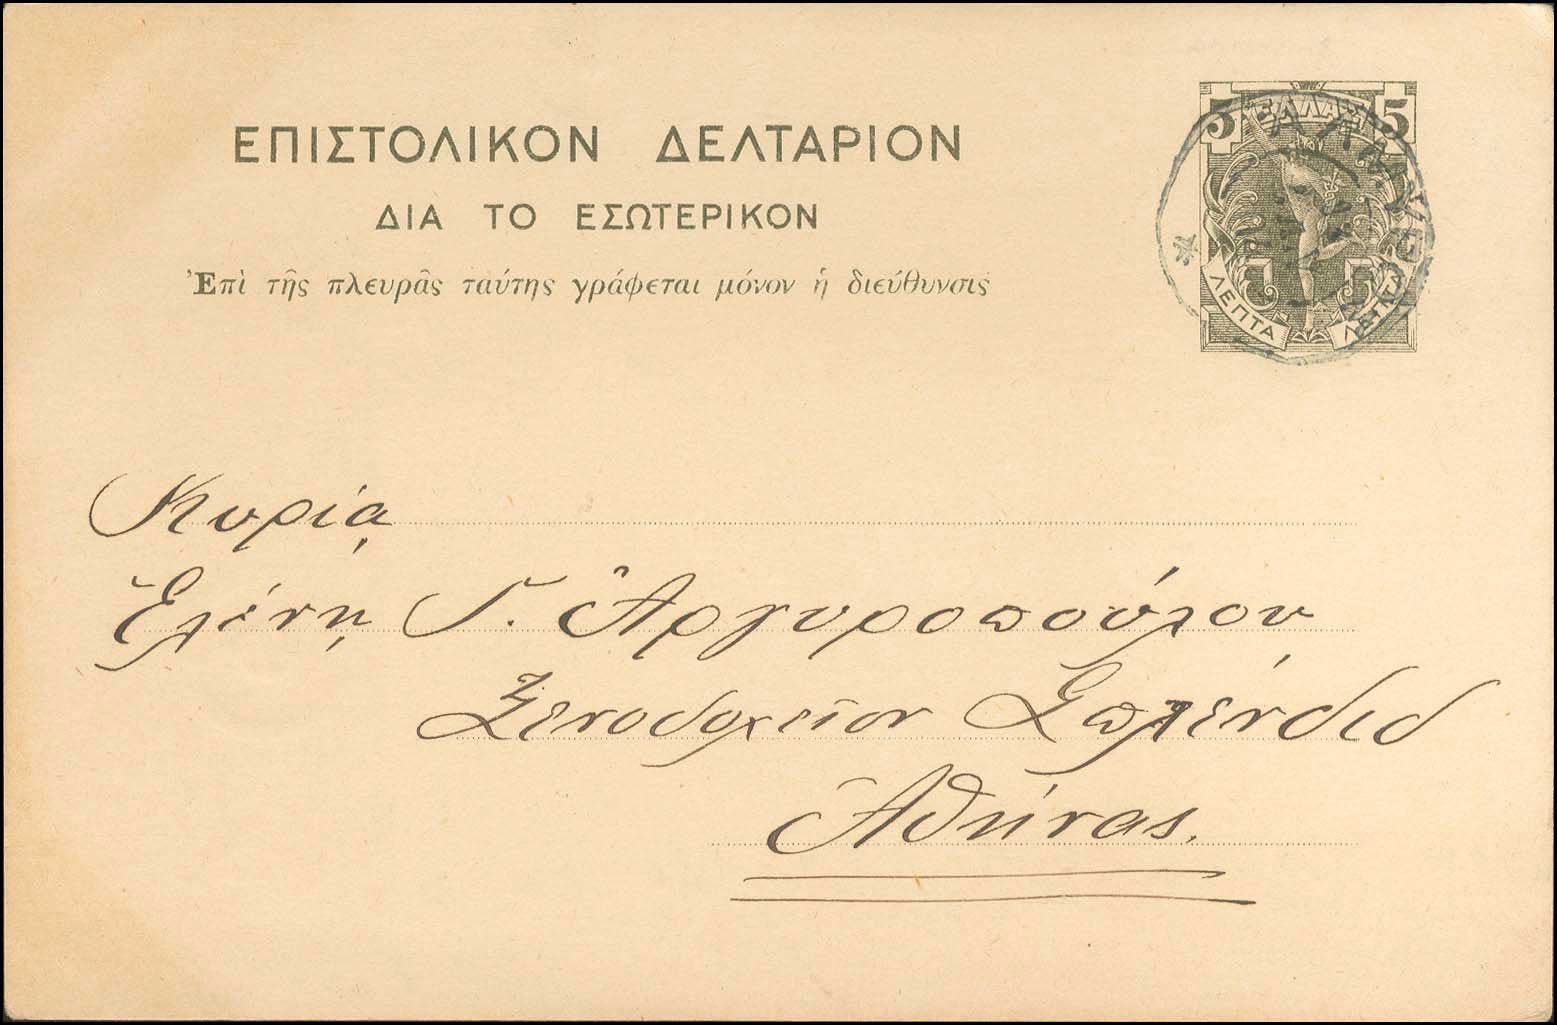 ΕΠΙΣΤΟΛΙΚΟΝ ΔΕΛΤΑΡΙΟΝ
ΔΙΑ ΤΟ ΕΣΩΤΕΡΙΚΟΝ
Ἐπὶ τῆς πλευρᾶς ταύτης γράφεται μόνον ἡ διεύθυνσις
5 ΕΛΛΑΣ 5
ΛΕΠΤΑ ΛΕΠΤΑ
Κυρίᾳ
Ἑλένῃ Γ. Ἀργυροπούλου
Ξενοδοχεῖον Σπλένδιδ
Ἀθήνας.